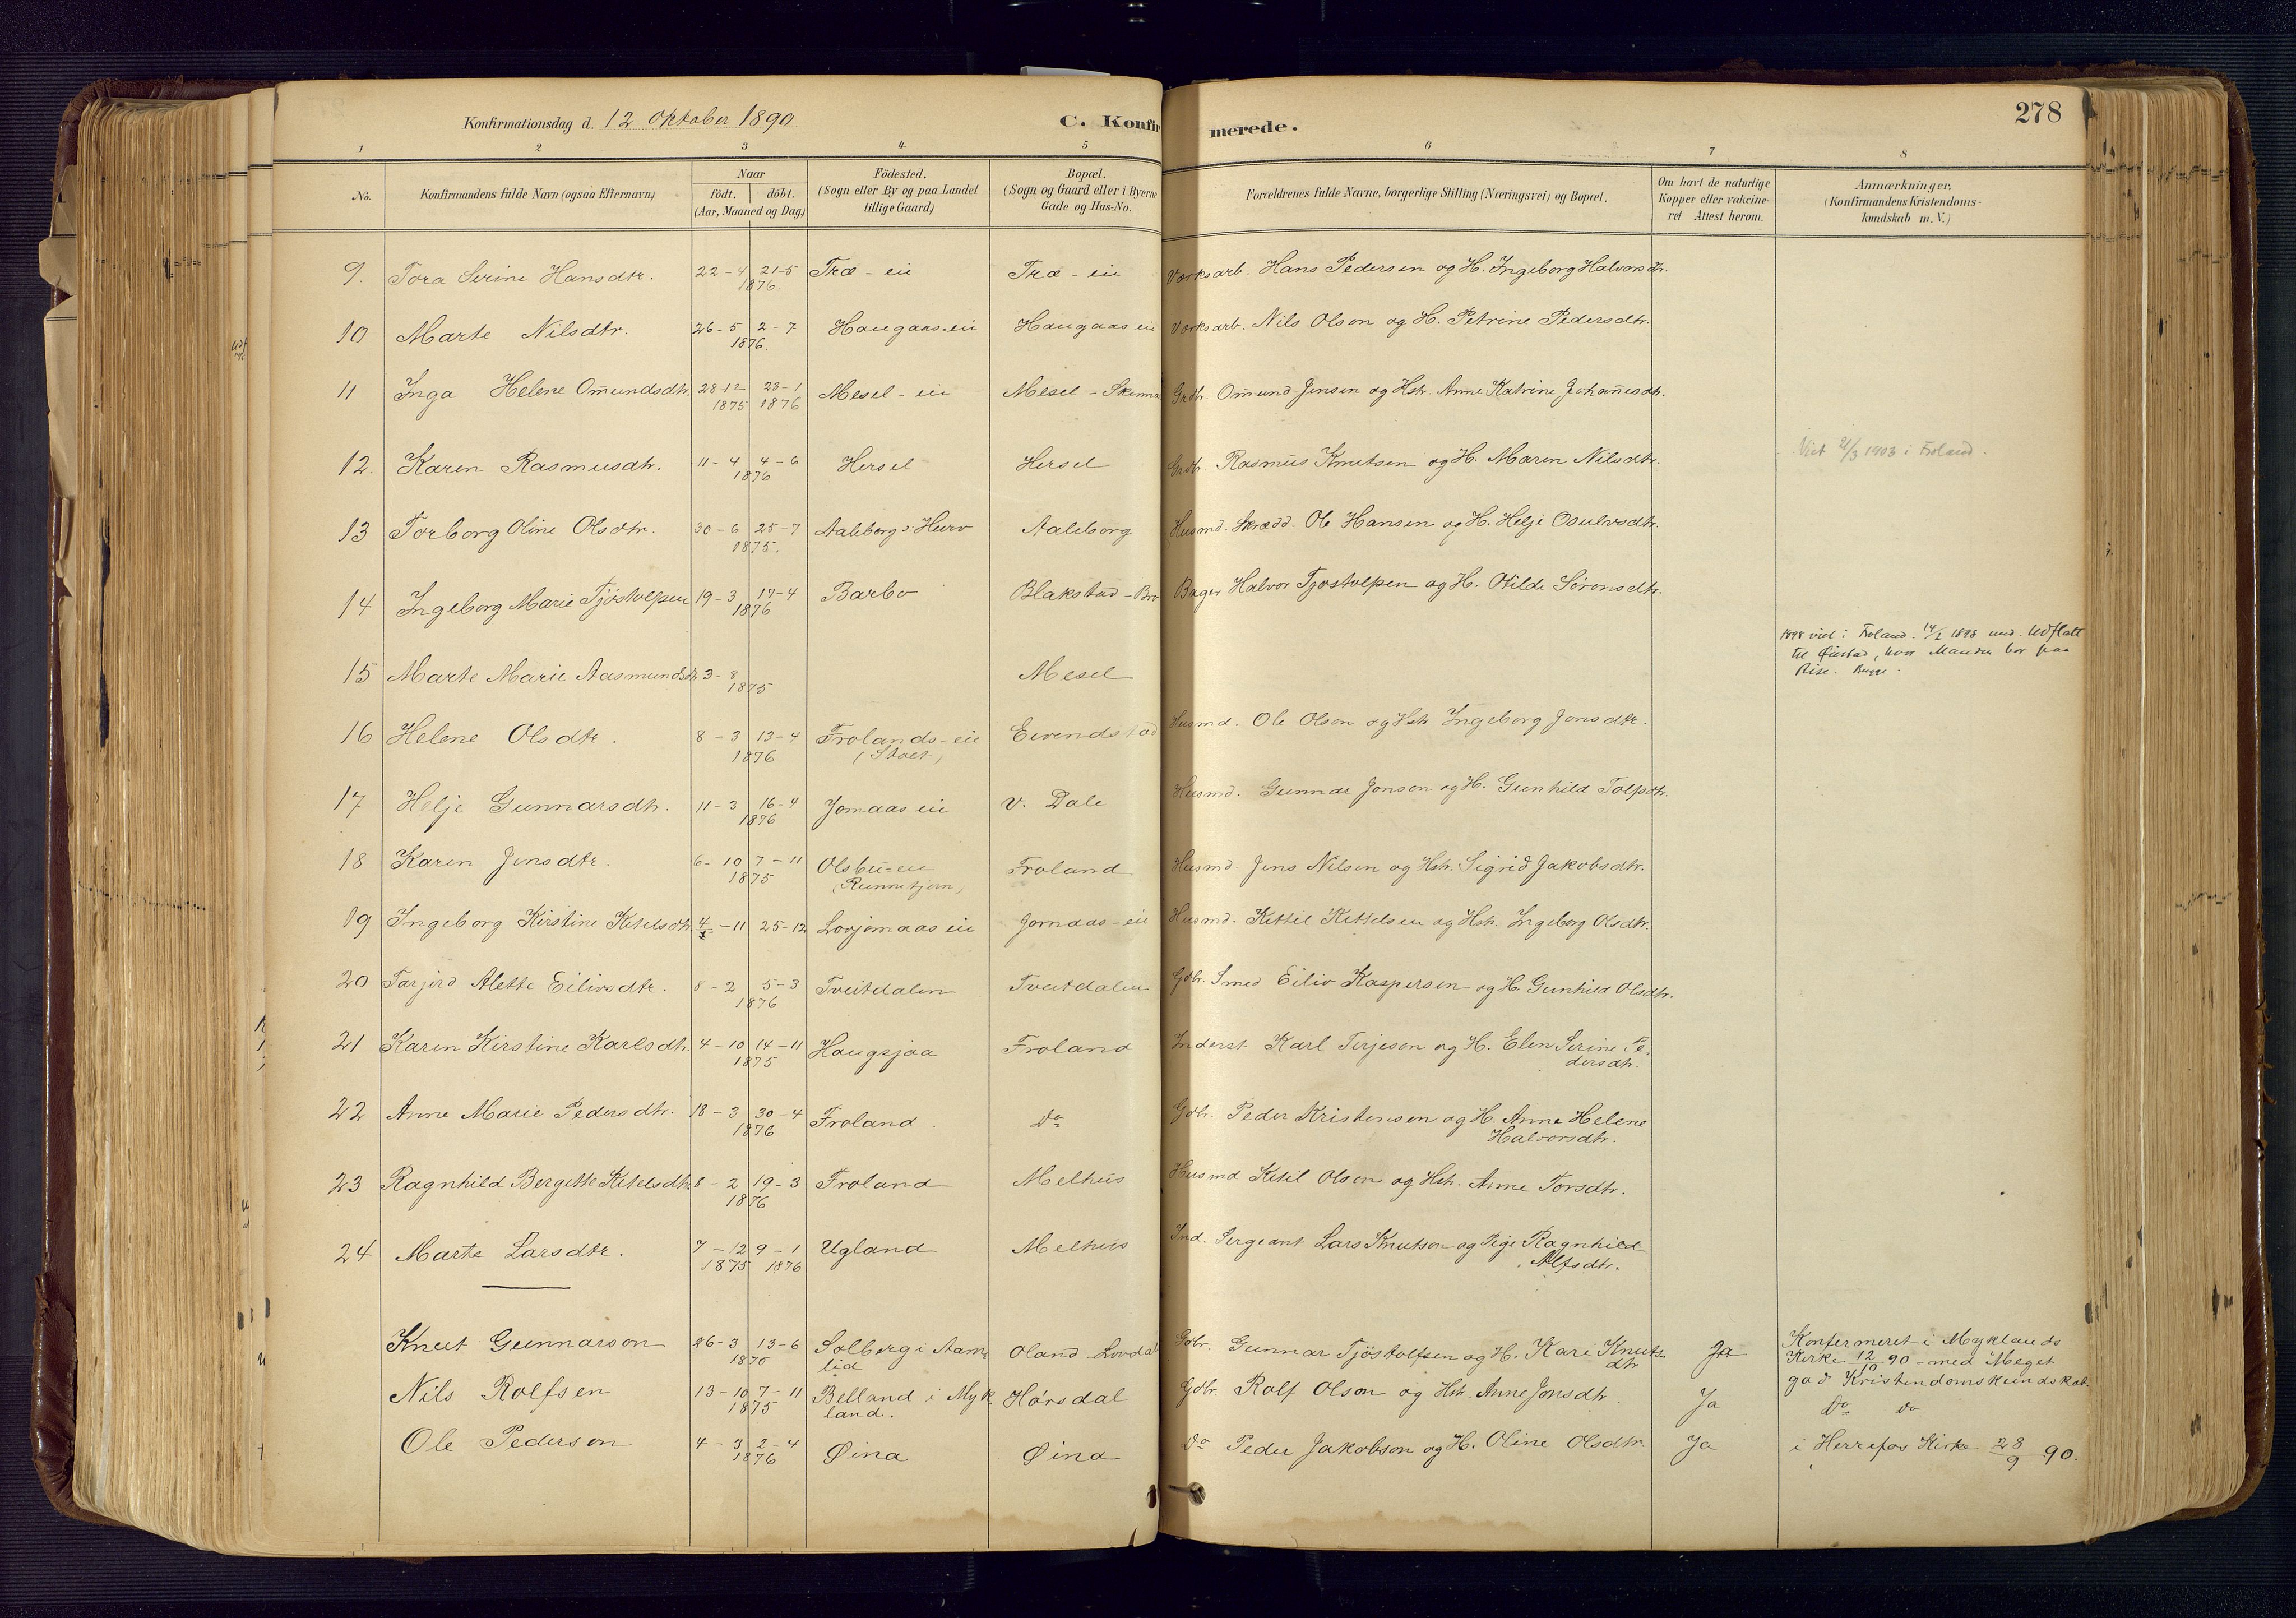 278
Konfirmationsdag d. 12 Oktober 1890 C. Konfirmerede.
1 2 3 4 5 6 7 8
No. Konfirmandens fulde Navn (ogsaa Efternavn) Naar födt. döbt. (Aar, Maaned og Dag) Födested. (Sogn eller By og paa Landet tillige Gaard) Bopæl. (Sogn og Gaard eller i Byerne Gade og Hus-No. Forældrenes fulde Navne, borgerlige Stilling (Næringsvei) og Bopæl. Om havt de naturlige Kopper eller vakcineret Attest herom. Anmærkninger. (Konfirmandens Kristendomskundskab m. V.)
9. Tora Serine Hansdtr. 22-4 21-5 1876. Træ-eie Træ-eie Værksarb. Hans Pedersen og H. Ingeborg Halvorsdtr.
10 Marte Nilsdtr. 26-5 2-7 1876. Haugaas eie Haugaas eie Værksarb. Nils Olson og H. Petrine Pedersdtr.
11 Inga Helene Om̄undsdtr. 28-12 1875 23-1 1876 Mesel-eie Mesel - Grdbr. Om̄und Jensen og Hstr. Anne Katrine Johan̄esdtr.
12. Karen Rasmusdtr. 11-4 4-6 1876 Hersel Hersel Grdbr. Rasmus Knutsen og H. Maren Nilsdtr. Viet 21/3 1903 i Froland.
13 Torborg Oline Olsdtr. 30-6 25-7 1875. Aaleborg i Aaleborg Husmd. Skrædd. Ole Hansen og H. Helje Osulvsdtr.
14 Ingeborg Marie Tjöstolvsen 19-3 17-4 1876 Barbo Blakstad-Bro Bager Halvor Tjostolvsen og H. Otilde Sörensdtr.
15 Marte Marie Aasmundsdtr. 3-8 1875 Mesel 1898 viet i Froland 14/2 1898 Udflytt til Øiestad, hvor Manden bor paa Rise.
16 Helene Olsdtr. 8-3 13-4 1876 Frolands-eie Eivendstad Husmd. Ole Olson og Hstr Ingeborg Jonsdtr.
17 Helje Gunnarsdtr. 11-3 16-4 1876 Jomaas eie V. Dale Husmd. Gunnar Jonson og H. Gunhild Tolfsdtr.
18 Karen Jensdtr. 6-10 7-11 1875 Olsbu-eie (Runnetjern) Froland Husmd. Jens Nilsen og Hstr. Sigrid Jakobsdtr.
19 Ingeborg Kirstine Ketelsdtr. 4-11 25-12 Lovjomaas eie Jomaas-eie Husmd. Kittil Kittelsen og Hstr. Ingeborg Olsdtr.
20 Tarjerd Alette Eilivsdtr. 8-2 5-3 1876 Tveitdalen Tveitdalen Gdbr. Smed Eiliv Kaspersen og H. Gunhild Olsdtr.
21 Karen Kirstine Karlsdtr. 4-10 14-11 1875 Haugsjaa Froland Inderst Karl Terjeson og H. Elen Serine Pedersdtr.
22 Anne Marie Pedersdtr. 18-3 30-4 1876 Froland. do Gdbr. Peder Kristensen og H. Anne Helene Halvorsdtr.
23 Ragnhild Bergitte Ketelsdtr. 8-2 19-3 1876 Froland Melhus Husmd Ketil Olson og Hstr. Anne Torsdtr.
24 Marte Larsdtr. 7-12 1875 9-1 1876 Ugland Melhus Ind. Sergeant Lars Knutson og Pige Ragnhild Alfsdtr.
Knut Gunnarson 26-3 13-6 1870 Solberg i Aamlid Oland-Lovdal Gdbr. Gunnar Tjöstolfsen og H. Kari Knutsdtr Ja Konfermeret i Myklands Kirke 12/10 90 - med Meget god Kristendomskundskab.
Nils Rolfsen 13-10 7-11 1875 Belland i Mykland. Hórsdal Gdbr. Rolf Olson og Hstr. Anne Jonsdtr Ja Do do
Ole Pederson 4-3 2-4 1876 Øina Øina do Peder Jakobson og H. Oline Olsdtr. Ja i Herrefos Kirke 28/9 90.